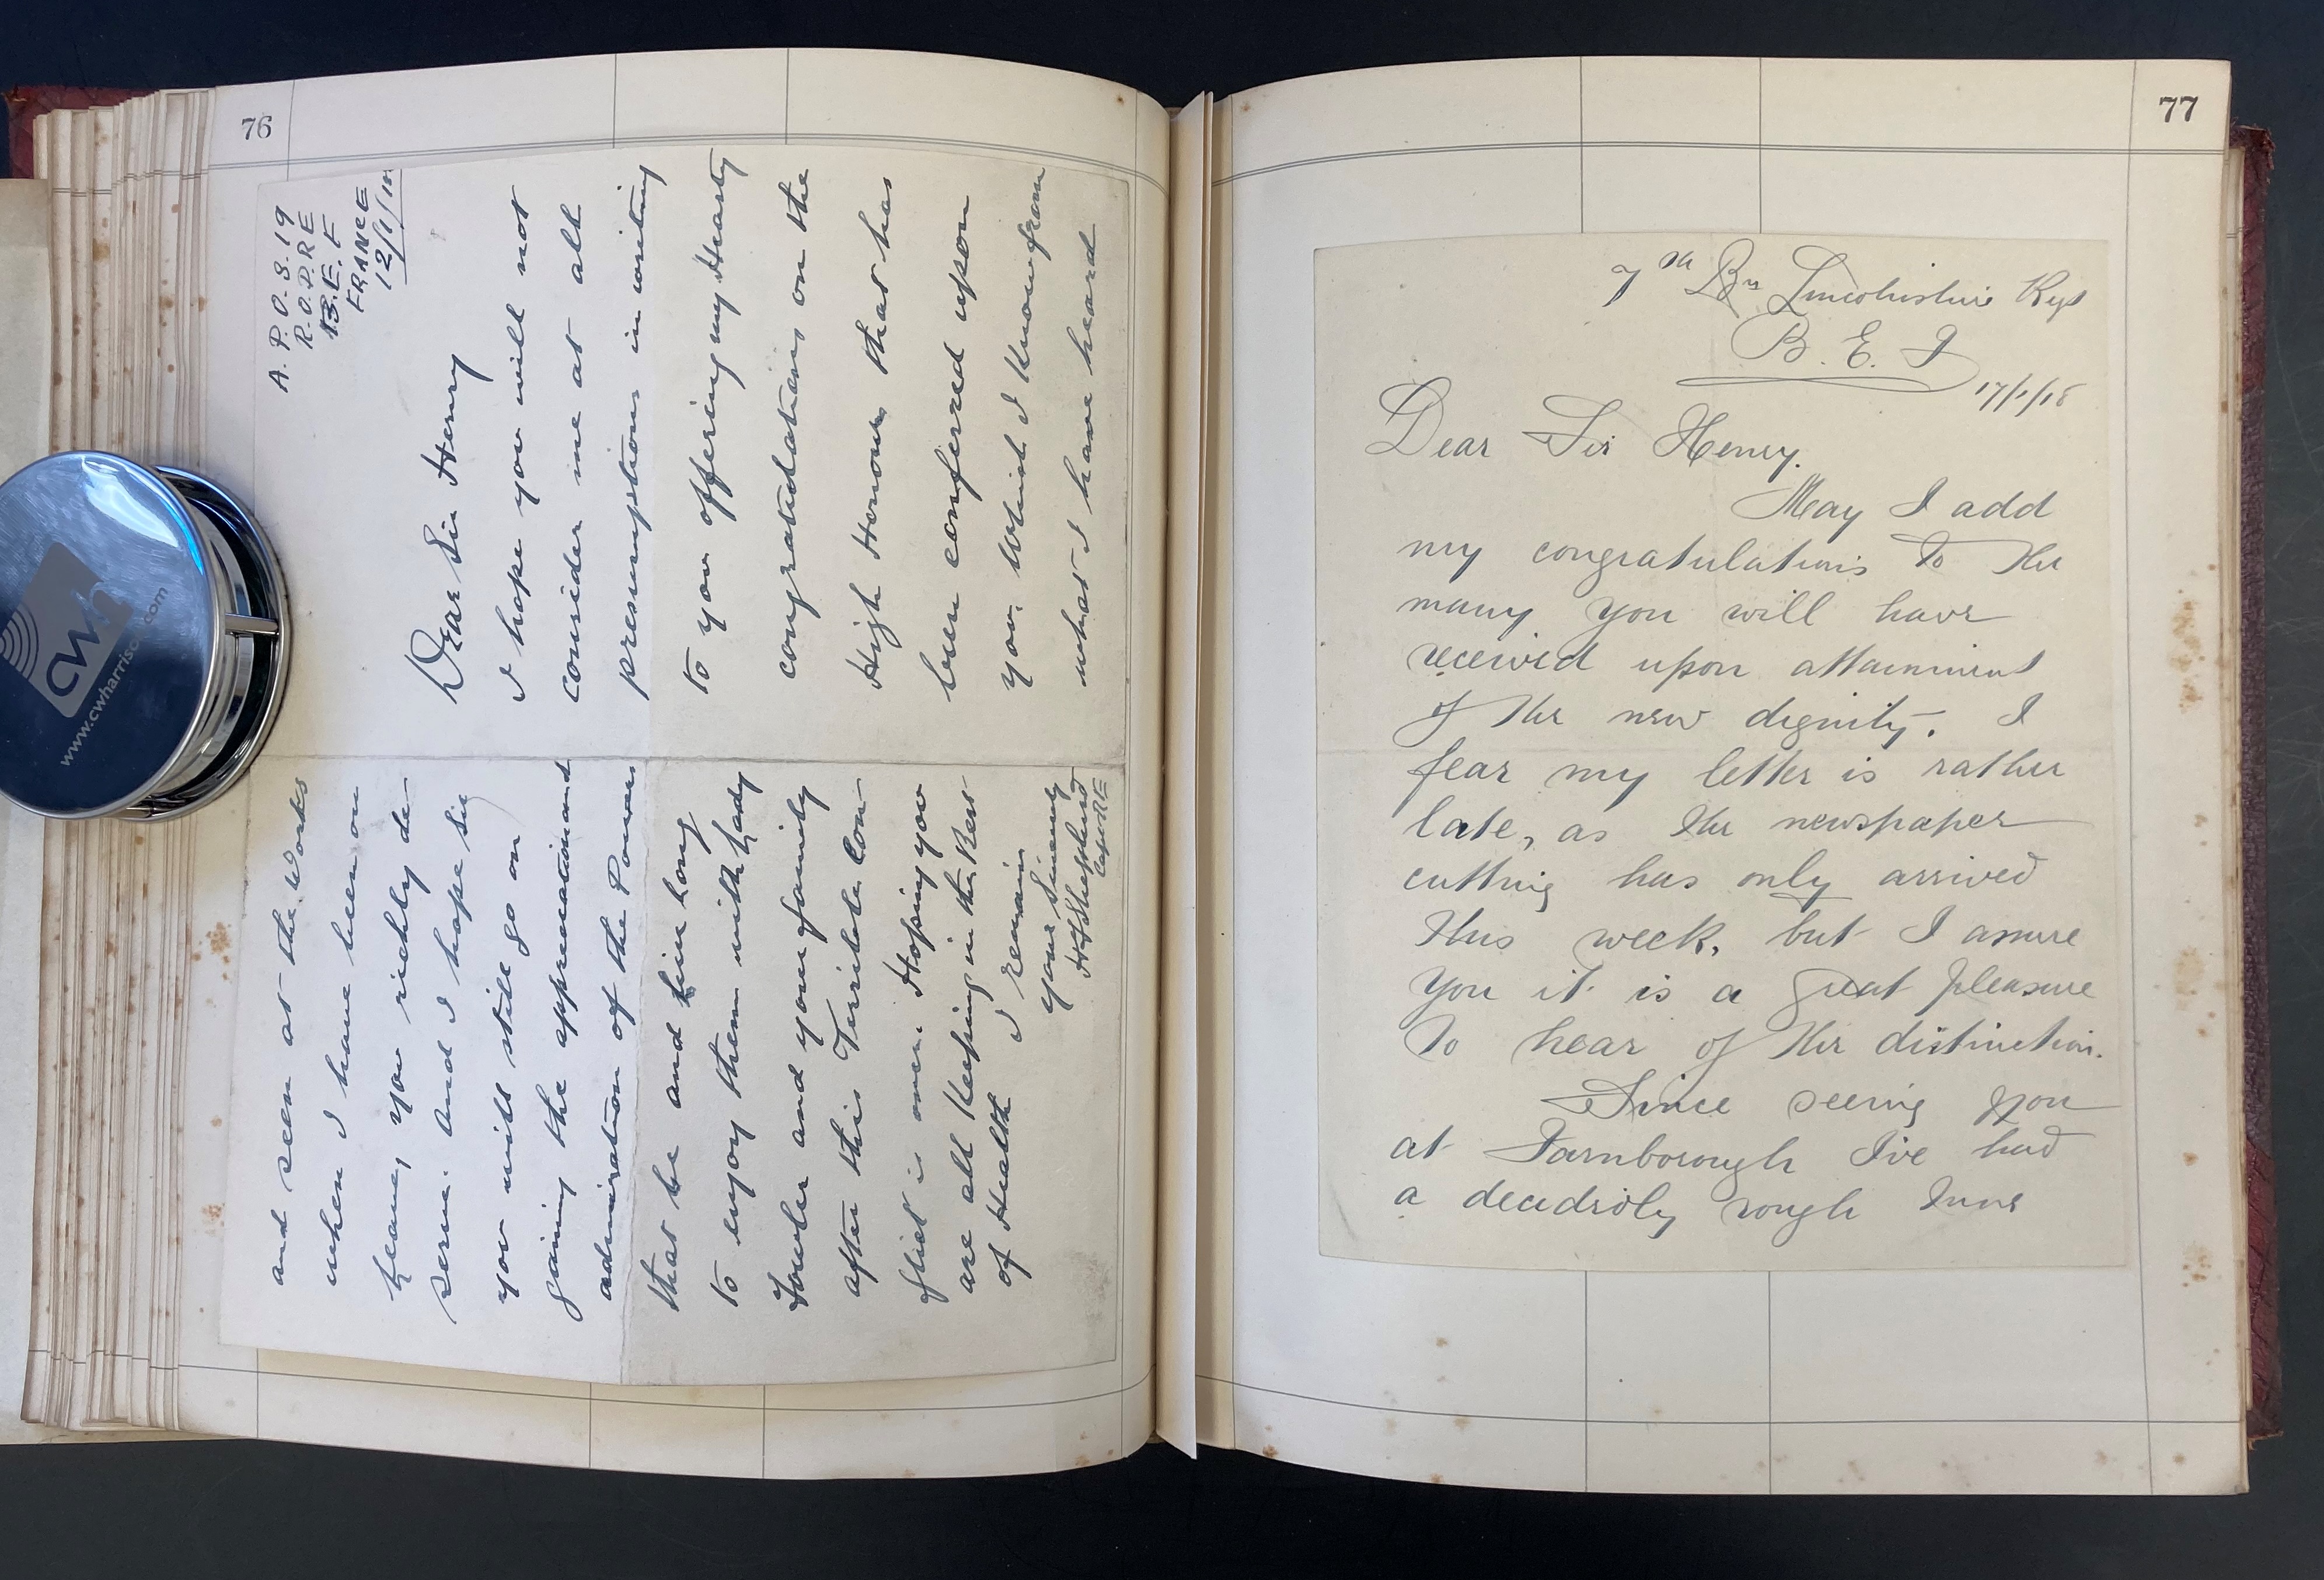 76
A. P. O. S. 19
R. O. D. R E
B. E. F
FRANCE
12/1/18
Dear Sir Henry
I hope you will not
consider me at all
presumptious in writing
to you offering my Hearty
congratulations on the
High Honour that has
been conferred upon
you. Which I Know from
what I have heard
and seen at the Works
when I have been on
Leave, you richly de-
serve. And I hope Sir
you will still go on
gaining the appreciation and
admiration of the Powers
that be and live long
to enjoy them with Lady
Fowler and your family
after this Terrible Con-
flict is over. Hoping you
are all Keeping in the Best
of Health I remain
yours Sincerely
Capt RE
cwh
www.cwharrison.com
77
7th Bn Lincolnshire Regt
B. E. F
17/1/18
Dear Sir Henry.
May I add
my congratulations to the
many you will have
received upon attainment
of the new dignity. I
fear my letter is rather
late, as the newspaper
cutting has only arrived
this week, but I assure
you it is a great pleasure
to hear of the distinction.
Since seeing you
at Farnborough I've had
a deucedly rough time